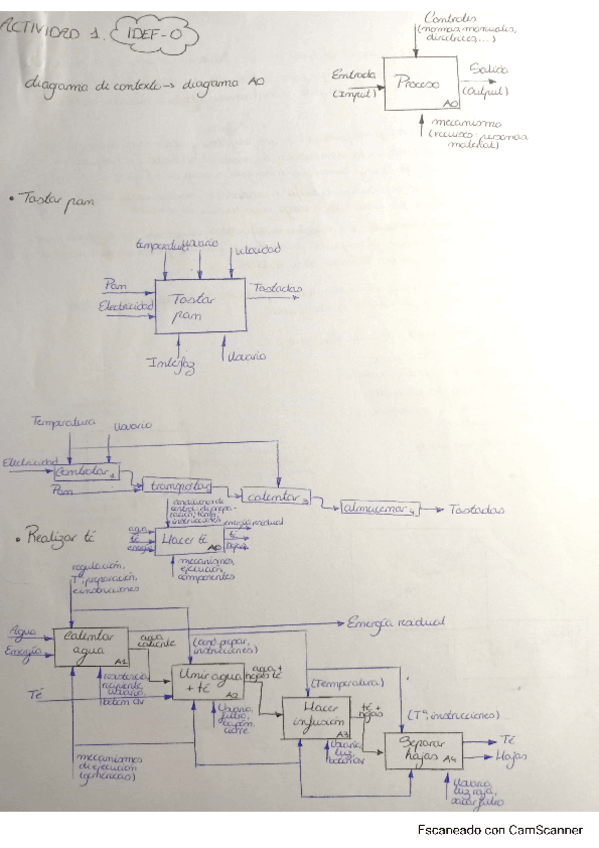 ACTIVIDAD 1. IDEF-0
Controles
(normas, manuales,
directrices...)
diagrama de contexto → diagrama A0
Entrada
(Input)
Proceso
A0
Salida
(Output)
mecanismo
(recursos, personas
material)
• Tostar pan
temperatura
Usuario
velocidad
Pan
Electricidad
Tostar
pan
Tostadas
Interfaz
Usuario
Temperatura
Usuario
Electricidad
Controlar 1
Pan
transportar
calentar 3
almacenar 4
Tostadas
• Realizar té
condiciones de
instrucciones
agua
té
energía
Hacer té
A0
energía residual
té
mecanismos,
ejecución,
componentes
regulación,
Tª, preparación,
e instrucciones
Agua
Energía
Calentar
agua
A1
agua
caliente
(cond. prepar,
instrucciones)
Energía residual
resistencia,
recipiente,
usuario,
boton
Té
Unir agua
+ té
A2
agua +
hojas té
(Temperatura)
Usuario,
filtro,
cierre
Hacer
infusión
A3
té +
hojas
(Tª, instrucciones)
Usuario,
luz,
mecanismos
de ejecución
(genéricos)
Separar
hojas
A4
Té
Hojas
Usuario,
luz roja,
sacar filtro
Escaneado con CamScanner